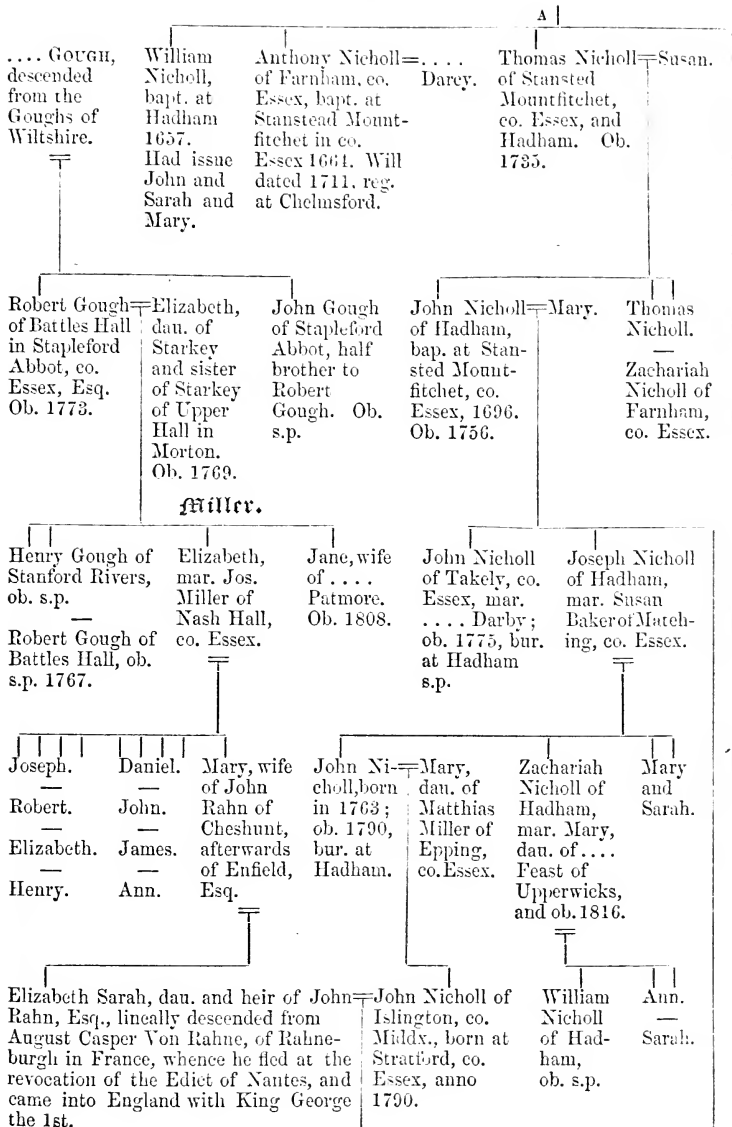 A
.... GOUGH,
descended
from the
Goughs of
Wiltshire.
William
Nicholl,
bapt. at
Hadham
1657.
Had issue
John and
Sarah and
Mary.
Anthony Nicholl=....
of Farnham, co. Darcy.
Essex, bapt. at
Stanstead Mount-
fitchet in co.
Essex 1661. Will
dated 1711, reg.
at Chelmsford.
Thomas Nicholl=Susan.
of Stansted
Mountfitchet,
co. Essex, and
Hadham. Ob.
1735.
Robert Gough=Elizabeth,
of Battles Hall
in Stapleford
Abbot, co.
Essex, Esq.
Ob. 1773.
dau. of
Starkey
and sister
of Starkey
of Upper
Hall in
Morton.
Ob. 1769.
John Gough
of Stapleford
Abbot, half
brother to
Robert
Gough. Ob.
s.p.
John Nicholl=Mary.
of Hadham,
bap. at Stan-
sted Mount-
fitchet, co.
Essex, 1696.
Ob. 1756.
Thomas
Nicholl.
—
Zachariah
Nicholl of
Farnham,
co. Essex.
Miller.
Henry Gough of
Stanford Rivers,
ob. s.p.
—
Robert Gough of
Battles Hall, ob.
s.p. 1767.
Elizabeth,
mar. Jos.
Miller of
Nash Hall,
co. Essex.
Jane, wife
of ....
Patmore.
Ob. 1808.
John Nicholl
of Takely, co.
Essex, mar.
.... Darby;
ob. 1775, bur.
at Hadham
s.p.
Joseph Nicholl
of Hadham,
mar. Susan
Baker of Match-
ing, co. Essex.
Joseph.
—
Robert.
—
Elizabeth.
—
Henry.
Daniel.
—
John.
—
James.
—
Ann.
Mary, wife
of John
Rahn of
Cheshunt,
afterwards
of Enfield,
Esq.
John Ni-=Mary,
choll, born
in 1763;
ob. 1790,
bur. at
Hadham.
dau. of
Matthias
Miller of
Epping,
co. Essex.
Zachariah
Nicholl of
Hadham,
mar. Mary,
dau. of....
Feast of
Upperwicks,
and ob. 1816.
Mary
and
Sarah.
Elizabeth Sarah, dau. and heir of John=John Nicholl of
Rahn, Esq., lineally descended from
August Casper Von Rahne, of Rahne-
burgh in France, whence he fled at the
revocation of the Edict of Nantes, and
came into England with King George
the 1st.
Islington, co.
Middx., born at
Stratford, co.
Essex, anno
1790.
William
Nicholl
of Had-
ham,
ob. s.p.
Ann.
—
Sarah.